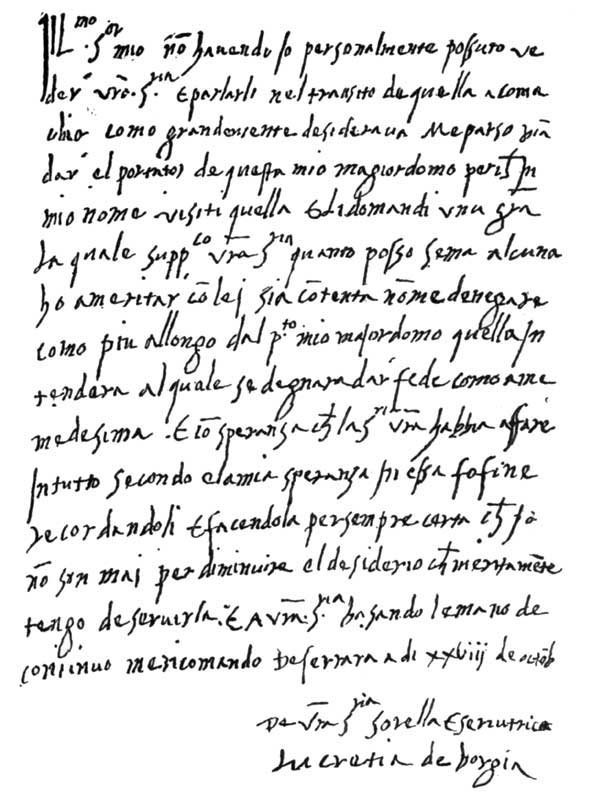 Ill.mo S.or mio nō hauendo Jo personalmente possuto ve
der vrā. S.ria E parlarli nel transito de quella a coma
chio como grandemente desideraua Me parso
dar el portator de questa mio magiordomo per In
mio nome visiti quella E li domandi vna gra
La quale supp.co vrā S.ria quanto posso sema alcuna
ho a meritar cō lej sia cōtenta nō me denegare
como piu allongo dal p.to mio majordomo quella In
tendera al quale se degnara dar fede como a me
medesima. E cō speranza ch la S.ria vrā habba affare
In tutto secondo e la mia speranza In essa fo fine
recordandoli E facendola per sempre certa ch Jo
nō son maj per diminuire el desiderio ch meritamēte
tengo de seruirla. E A vrā. S.ria basando le mano de
continuo me ricomando De ferrara a di xxviij de octob
De vrā S.ria Sorella E seruitrice
Lucretia de borgia